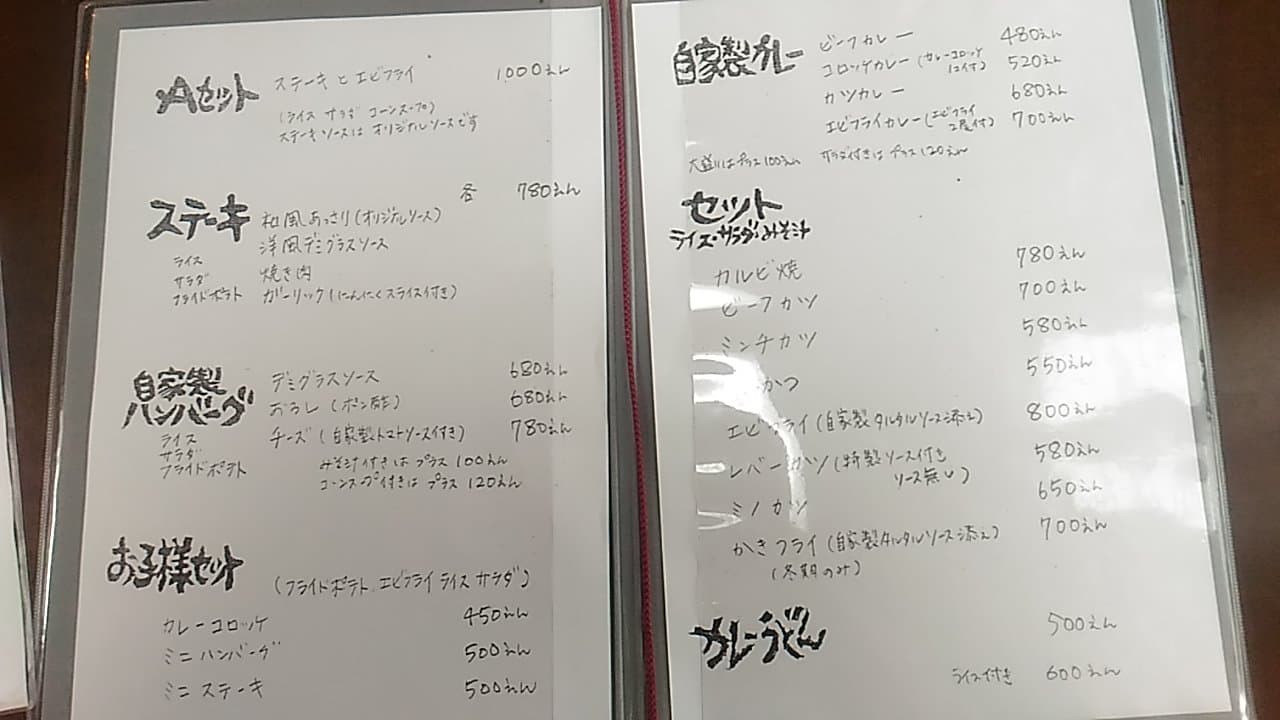 Aセット
ステーキとエビフライ 1000えん
(ライス サラダ コーンスープ)
ステーキソースはオリジナルソースです
ステーキ
各 780えん
和風あっさり(オリジナルソース)
洋風デミグラスソース
焼き肉
ガーリック(にんにくスライス付き)
ライス
サラダ
フライドポテト
自家製
ハンバーグ
デミグラスソース 680えん
おろし(ポン酢) 680えん
チーズ(自家製トマトソース付き) 780えん
ライス
サラダ
フライドポテト
みそ汁付きはプラス100えん
コーンスープ付きはプラス120えん
お子様セット
(フライドポテト エビフライ ライス サラダ)
カレーコロッケ 450えん
ミニハンバーグ 500えん
ミニステーキ 500えん
自家製カレー
ビーフカレー 480えん
コロッケカレー(カレーコロッケ 520えん
1コ付)
カツカレー 680えん
エビフライカレー(エビフライ 700えん
2尾付)
大盛りはプラス100えん サラダ付きはプラス120えん
セット
ライス・サラダ・みそ汁
カルビ焼 780えん
ビーフカツ 700えん
ミンチカツ 580えん
かつ 550えん
エビフライ(自家製タルタルソース添え) 800えん
レバーカツ(特製ソース付き 580えん
ソース無し)
ミノカツ 650えん
かきフライ(自家製タルタルソース添え) 700えん
(冬期のみ)
カレーうどん 500えん
ライス付き 600えん